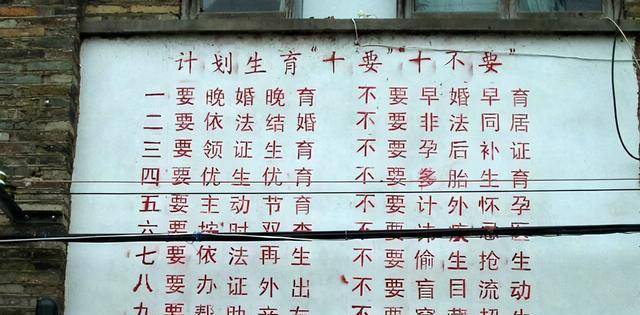 计划生育“十要”“十不要”
一要晚婚晚育 不要早婚早育
二要依法结婚 不要非法同居
三要领证生育 不要孕后补证
四要优生优育 不要多胎生育
五要主动节育 不要计外怀孕
六要按时双查 不要讳疾忌医
七要依法再生 不要偷生抢生
八要办证外出 不要盲目流动
九要帮助 不要